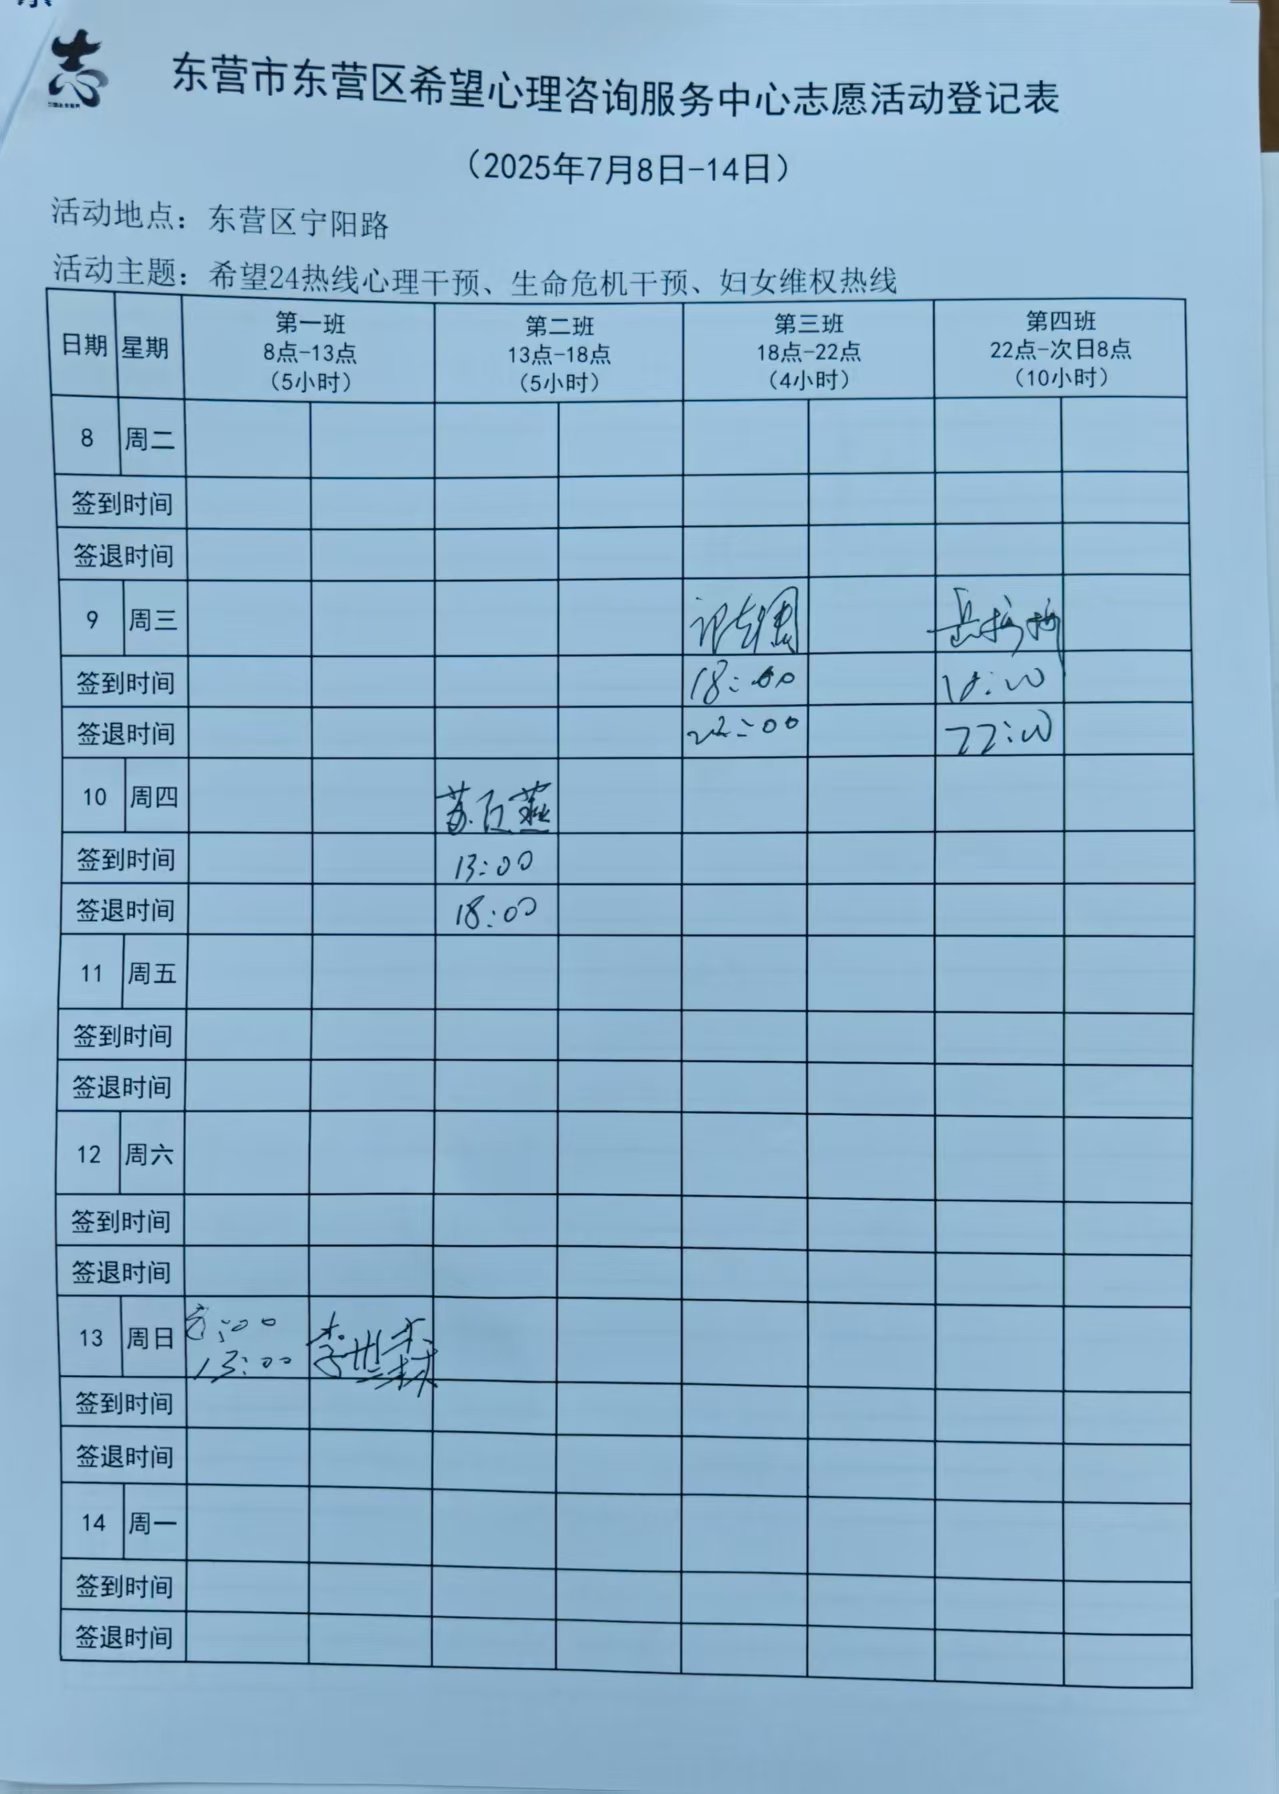 志
东营市东营区希望心理咨询服务中心志愿活动登记表
（2025年7月8日-14日）
活动地点：东营区宁阳路
活动主题：希望24热线心理干预、生命危机干预、妇女维权热线
日期 星期 第一班 8点-13点 （5小时） 第二班 13点-18点 （5小时） 第三班 18点-22点 （4小时） 第四班 22点-次日8点 （10小时）
8 周二
签到时间
签退时间
9 周三
签到时间 18:00 18:00
签退时间 22:00 22:00
10 周四 苏百燕
签到时间 13:00
签退时间 18:00
11 周五
签到时间
签退时间
12 周六
签到时间
签退时间
13 周日 8:00 13:00 李世森
签到时间
签退时间
14 周一
签到时间
签退时间